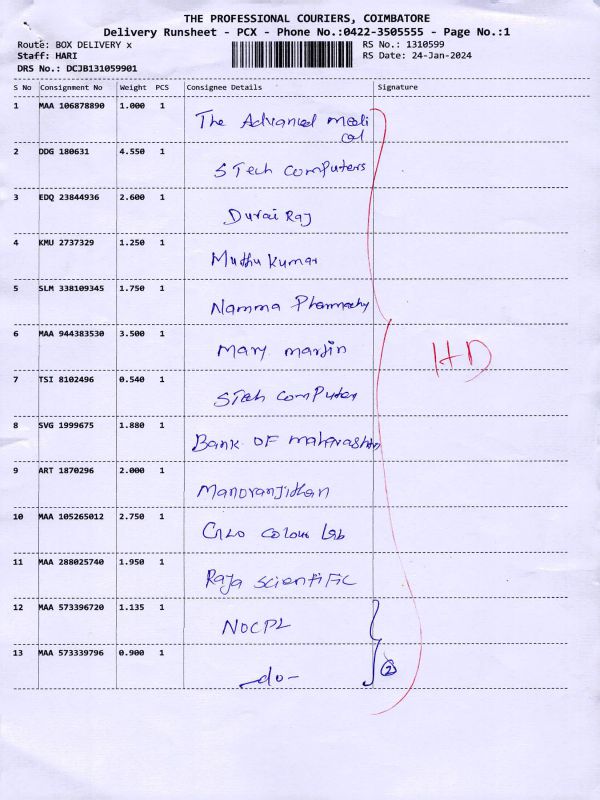 THE PROFESSIONAL COURIERS, COIMBATORE
Delivery Runsheet - PCX - Phone No.:0422-3505555 - Page No.:1
Route: BOX DELIVERY x
Staff: HARI
DRS No.: DCJB131059901
RS No.: 1310599
RS Date: 24-Jan-2024
S No Consignment No Weight PCS Consignee Details Signature
1 MAA 106878890 1.000 1 The Advanced Medi
cal
2 DDG 180631 4.550 1 STech Computers
3 EDQ 23844936 2.600 1 Durai Raj
4 KMU 2737329 1.250 1 Muthu Kumar
5 SLM 338109345 1.750 1 Namma Pharmachy
6 MAA 944383530 3.500 1 Mary martin
HD
7 TSI 8102496 0.540 1 STech computer
8 SVG 1999675 1.880 1 Bank OF maharashtra
9 ART 1870296 2.000 1 Manoranjithan
10 MAA 105265012 2.750 1 Colour Lab
11 MAA 288025740 1.950 1 Raja scientific
12 MAA 573396720 1.135 1 NOCPL
13 MAA 573339796 0.900 1 -do-
2